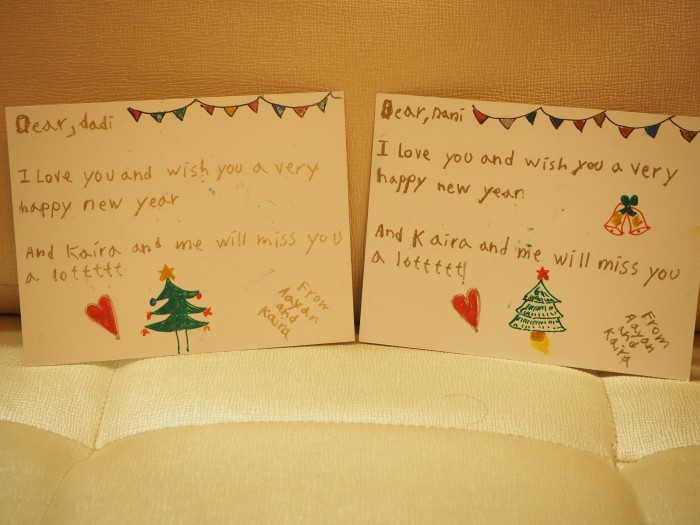 Dear, dadi
I Love you and wish you a very
happy new year
And Kaira and me will miss you
a lottttt
From
Aayan
and
Kaira
Dear, nani
I love you and wish you a very
happy new year
And Kaira and me will miss you
a lottttt!
From
Aayan
and
Kaira